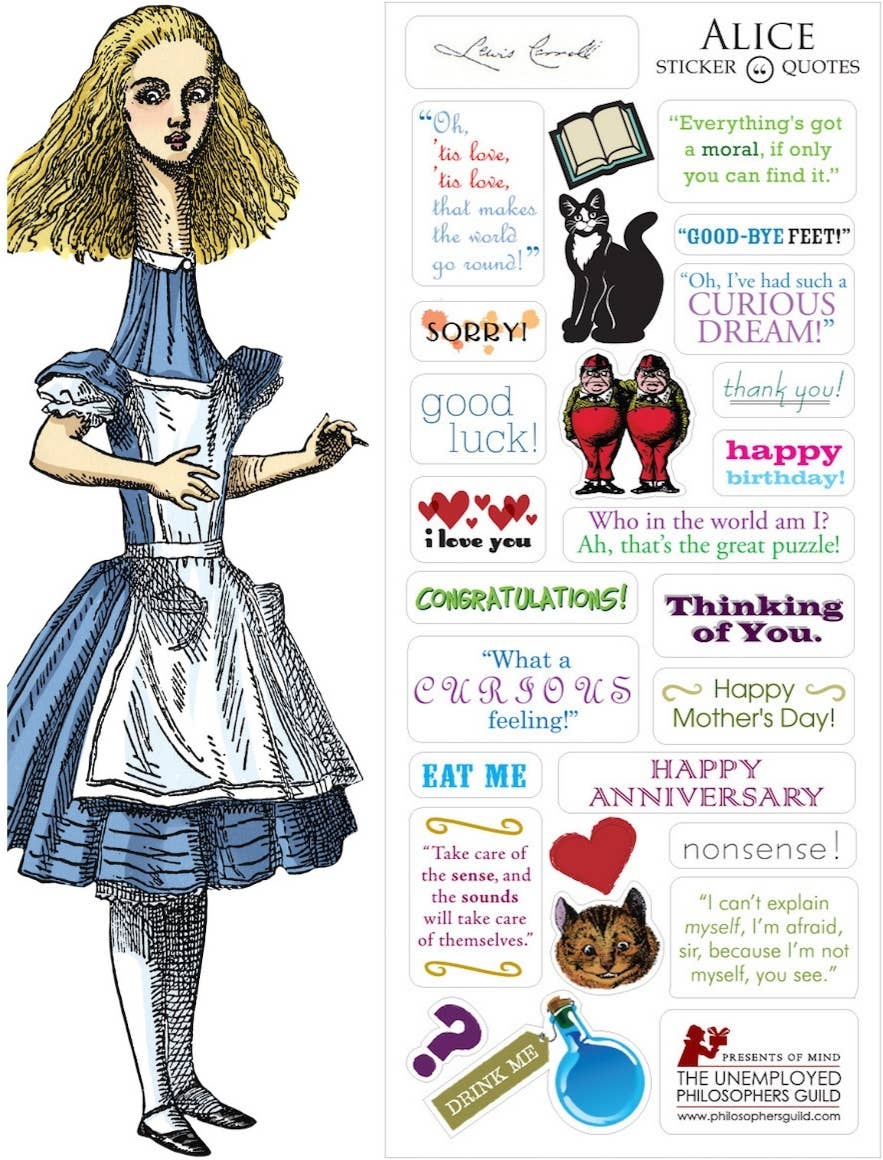 Lewis Carroll
ALICE
STICKER “ QUOTES
“Oh,
'tis love,
'tis love,
that makes
the world
go round!”
“Everything's got
a moral, if only
you can find it.”
“GOOD-BYE FEET!”
“Oh, I've had such a
CURIOUS
DREAM!”
SORRY!
thank you!
good
luck!
happy
birthday!
i love you
Who in the world am I?
Ah, that's the great puzzle!
CONGRATULATIONS!
Thinking
of You.
“What a
CURIOUS
feeling!”
Happy
Mother's Day!
EAT ME
HAPPY
ANNIVERSARY
“Take care of
the sense, and
the sounds
will take care
of themselves.”
nonsense!
“I can't explain
myself, I'm afraid,
sir, because I'm not
myself, you see.”
?
DRINK ME
PRESENTS OF MIND
THE UNEMPLOYED
PHILOSOPHERS GUILD
www.philosophersguild.com